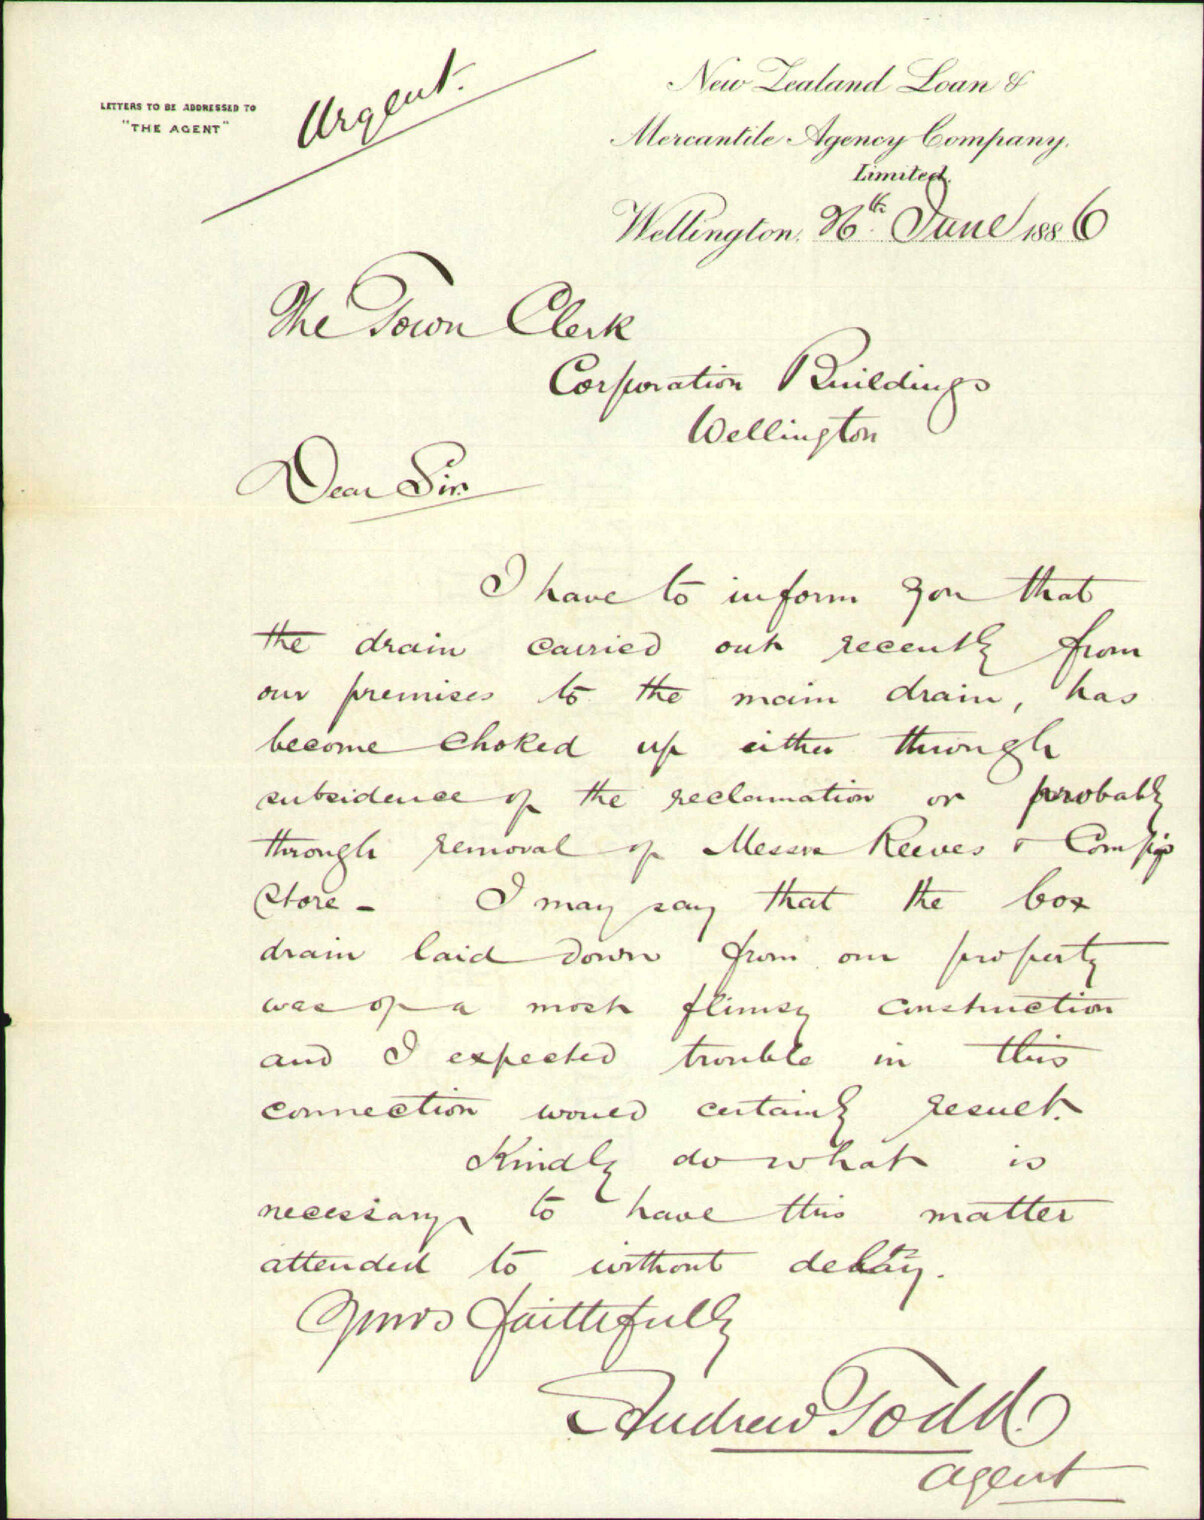 LETTERS TO BE ADDRESSED TO
"THE AGENT"
Urgent.
New Zealand Loan &
Mercantile Agency Company,
Limited.
Wellington, 26th June 1886
The Town Clerk
Corporation Buildings
Wellington
Dear Sir
I have to inform you that
the drain carried out recently from
our premises to the main drain, has
become choked up either through
subsidence of the reclamation or probably
through removal of Messrs Reeves & Comp's
Store - I may say that the box
drain laid down from our property
was of a most flimsy construction
and I expected trouble in this
connection would certainly result.
Kindly do what is
necessary to have this matter
attended to without delay.
Yours faithfully
Andrew Todd
Agent